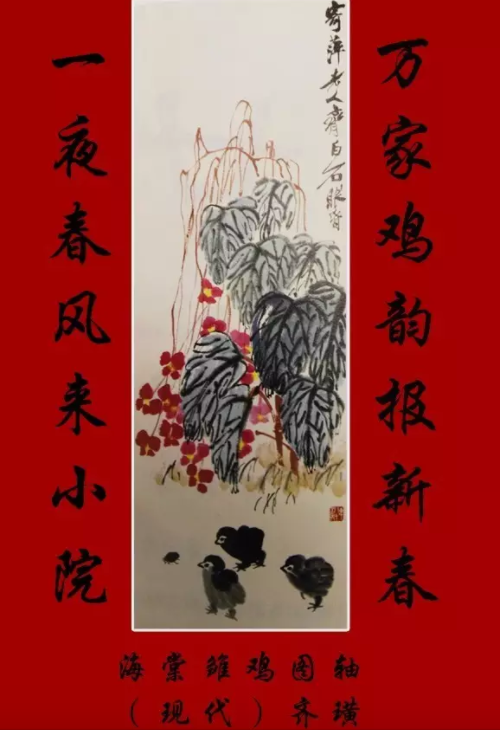 一夜春风来小院
万家鸡韵报新春
寄萍老人齊白石
海棠雏鸡图轴
（现代）齐璜